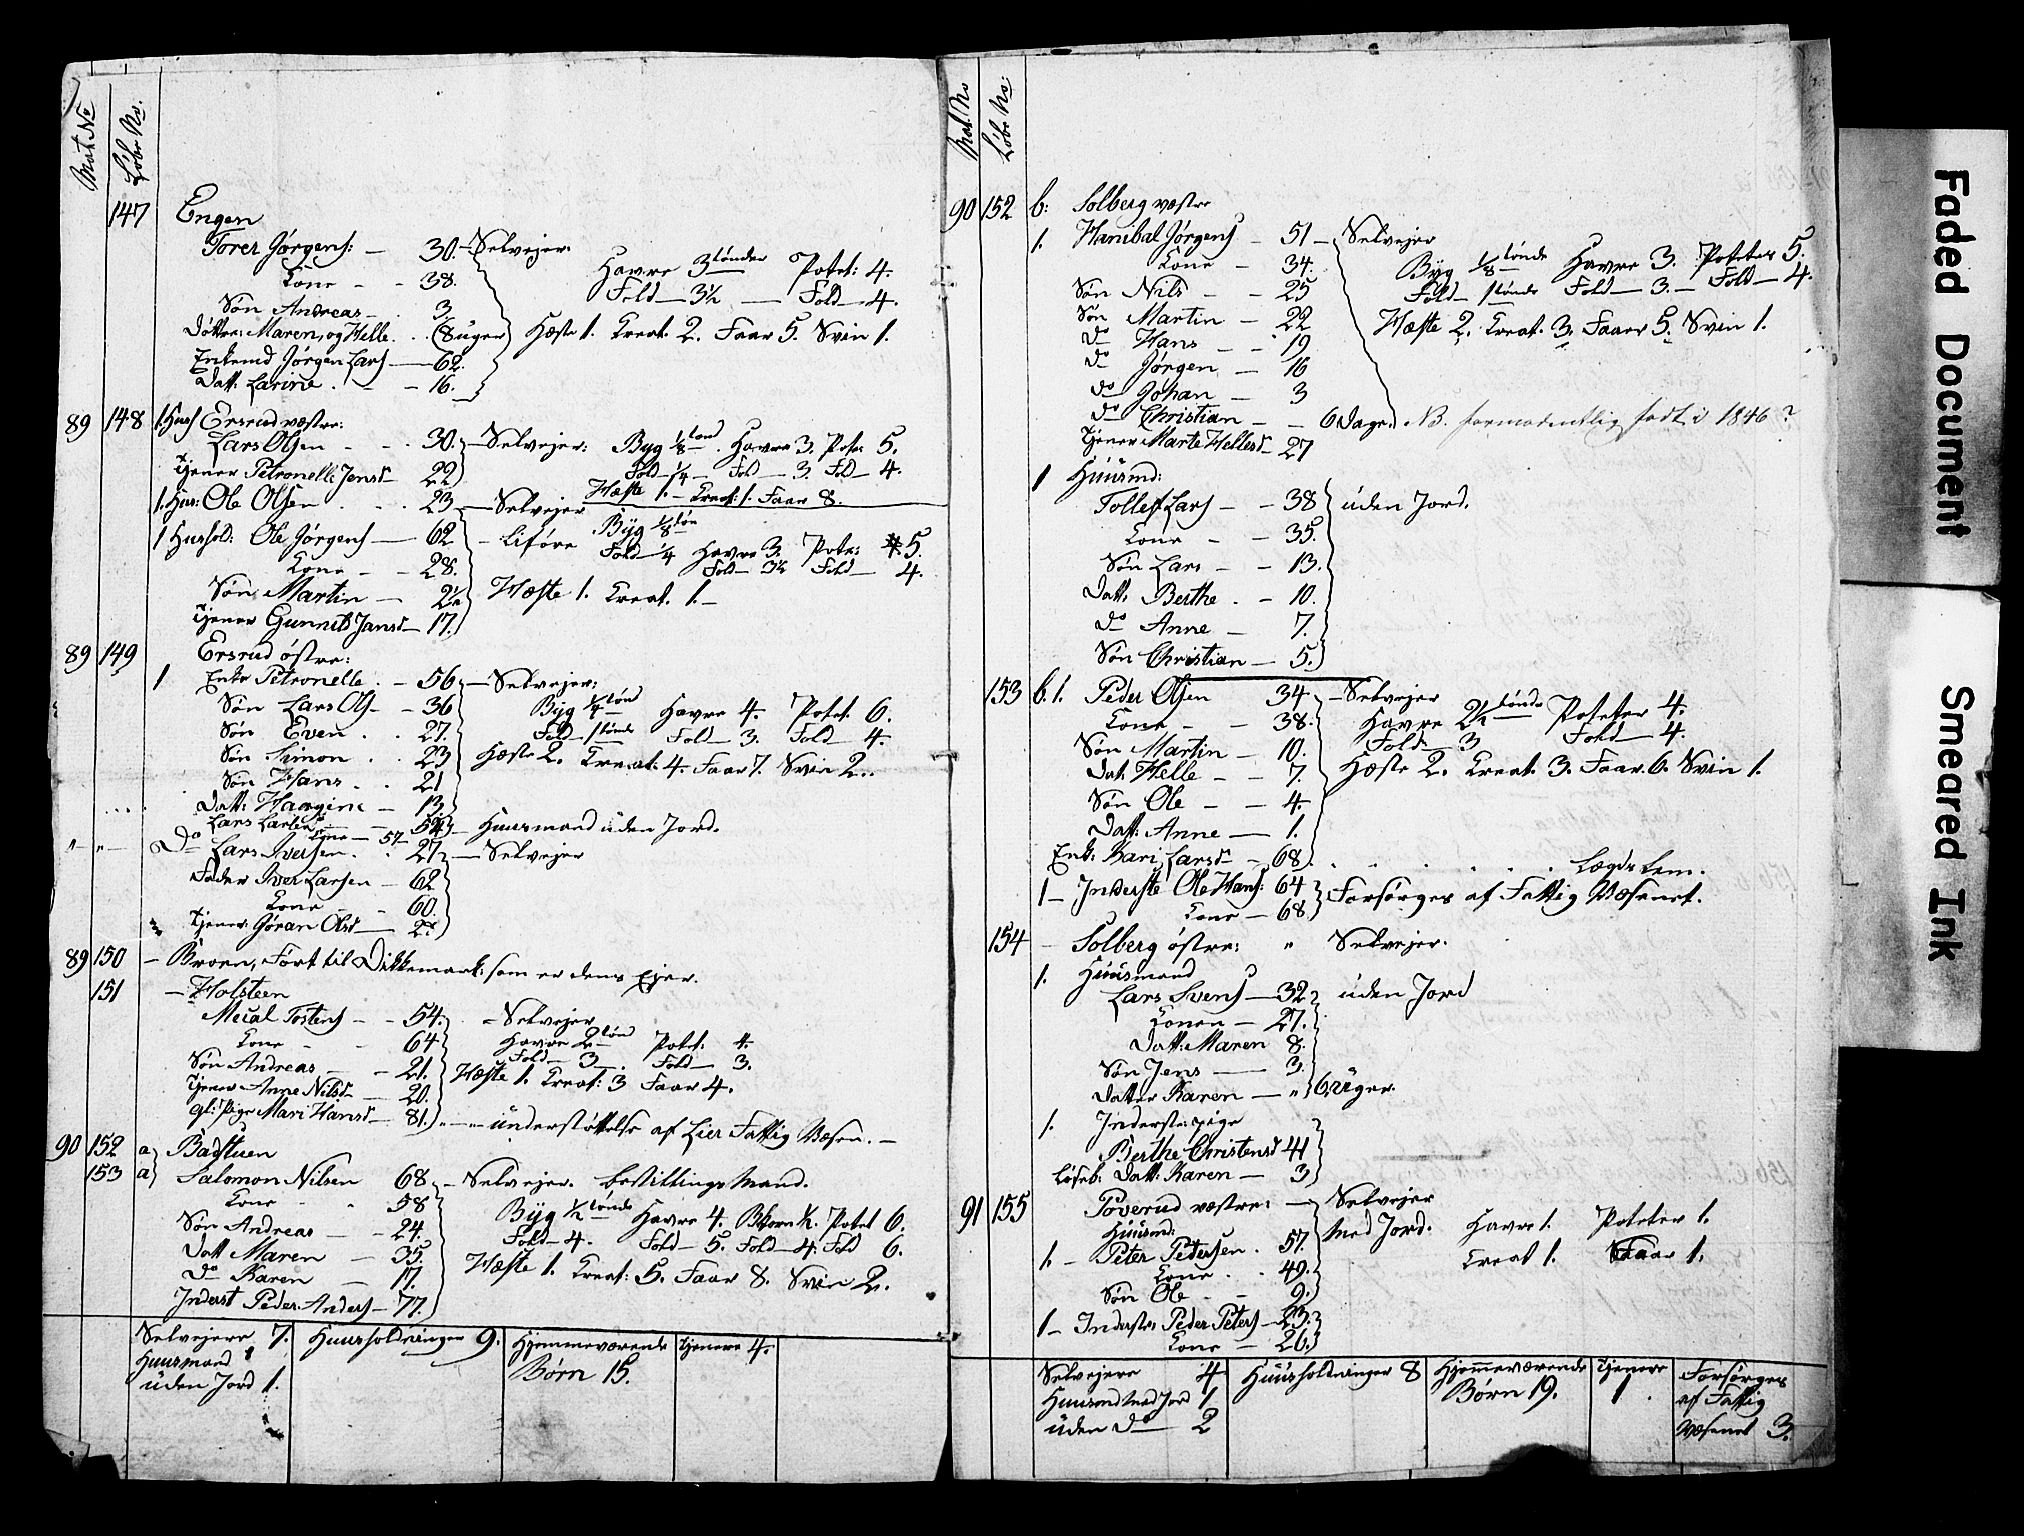 Mat. No
Løbe No.
147 Engen
Torer Jørgens: — 30. Selvejer.
Kone — 38. Havre 3 tønder Potet: 4.
Fold — 3½ — Fold — 4.
Søn Andreas — 3.
Døttre: Maren, og Helle . . (8 uger) Heste 1. Creat. 2. Faar 5. Svin 1.
Enkemd Jørgen Lars — 62.
Datt: Larine . — 16.
89 148 1 Hus Ersrud vestre:
Lars Olsen — 30. — Selvejer: Byg ⅛ tønd. Havre 3. Pote: 5.
tjener Petronelle Jensd — 22 Fold ¼ — Fold — 3. Fold — 4.
Heste 1. — Creat: 1. Faar 8.
1. Hus: Ole Olsen . . 23 — Selvejer
1 Hushold: Ole Jørgens — 62 — Liføre Byg ⅛ tøn Havre 3. Pote: 5.
Fold ¼ Fold 3½ Fold — 4.
Kone — 28.
Søn Martin — 2½ Heste 1. Creat. 1. —
tjener Gunnild Jansd — 17.
89 149 Ersrud østre:
1 Enke Petronelle . — 56 — Selvejer:
Søn Lars Ols — 36 Byg ¼ tønd Havre 4. Potet. 6.
Søn Even . . 27. Fold 1 tønde Fold — 3. Fold — 4.
Søn Simon . . 23 Heste 2. Creat: 4. Faar 7. Svin 2.
Søn Hans . . 21
Datt: Haagine — 13.
Lars Larsen — 54 — Huusmand uden Jord.
Kone — 57
" " — Do Lars Iversen . . 27 — Selvejer
Fader Iver Larsen — 62
Kone — 60.
tjener Gøran Olsd — 28
89 150 — Broen, Ført til Dikkemark: som er dens Ejer.
151 — Holsteen
Meial Tostens — 54. — Selvejer
Kone — 64 Havre 2 tønd Potet: 4.
Fold — 3 . Fold — 3.
Søn Andreas — 21. Heste 1. Creat: 3 Faar 4.
tjener Anne Nilsd — 20.
gl: Pige Mari Hansd — 81. " — " — understøttelse af Lier Fattig Væsen. —
90 152 a) Badstuen
153 a) Salomon Nilsen 68 — Selvejer. bestillings Mand.
Kone — 58 Byg ½ tønde Havre 4. Bkorn ½. Potet 6.
Søn Andreas — 24. Fold — 4. Fold — 5. Fold 4. Fold 6.
Datt Maren — 35. Heste 1. Creat: 5. Faar 8. Svin 2.
Do Karen — 17.
Inderst Peder Anders — 77.
Selvejere 7. Huusholdninger 9. Hjemmeværende Børn 15. tjenere 4.
Huusmand
uden Jord 1.
Mat. No
Løbe No.
90 152 b: Solberg vestre
1. Hanibal Jørgens — 51 — Selvejer
Kone — 34. Byg ⅛ tønde Havre 3. Poteter 5.
Søn Nils — 25 Fold — 1 tønde Fold — 3. — Fold — 4.
Søn Martin — 22 Heste 2. Creat. 3. Faar 5. Svin 1.
Do Hans — 19
Do Jørgen — 16
Do Johan — 3
Do Christian — 6 Dage. NB. formodentlig født i 1846?
tjener Marte Hellesd — 27
1 Huusmd:
Tollef Lars — 38 uden Jord.
Kone — 35.
Søn Lars — 13.
Datt: Berthe . — 10.
Do Anne — 7.
Søn Christian — 5.
153 b. 1. Peder Olsen 34 — Selvejer
Kone — 38. Havre 2½ tønde Poteter 4.
Søn Martin — 10. Fold — 3 Fold — 4.
Dat: Helle — 7. Heste 2. Creat. 3. Faar 6. Svin 1.
Søn Ole — 4.
Datt: Anne — 1.
Enk: Kari Larsd — 68. . . . . . Lægds Lem.
1 — Inderste Ole Hans: 64 Forsørges af Fattig Væsenet.
Kone — 68
154 — Solberg østre: " Selvejer.
1. Huusmand
Lars Svens — 32 uden Jord
Konen — 27.
Datt: Maren 8.
Søn Jens — 3.
Datter Karen — " 6 Uger.
1. Inderste: pige
Berthe Christensd 41
Løseb. Datt: Karen — 3
91 155 Poverud vestre: — Selvejer
Huusmd: Med Jord. Havre 1. Poteter 1.
1. — Peter Pedersen . 57. Creat 1. Faar 1.
Kone . . 49.
Søn Ole — 9.
1 — Inderste Peder Peters — 23.
Kone — 26.
Selvejere 4 Huusholdninger 8 Hjemmeværende Børn 19. tjenere 1 . Forsørges af Fattig Væsenet 3.
Huusmd Med Jord 1
uden Do — 2
Faded Document
Smeared Ink